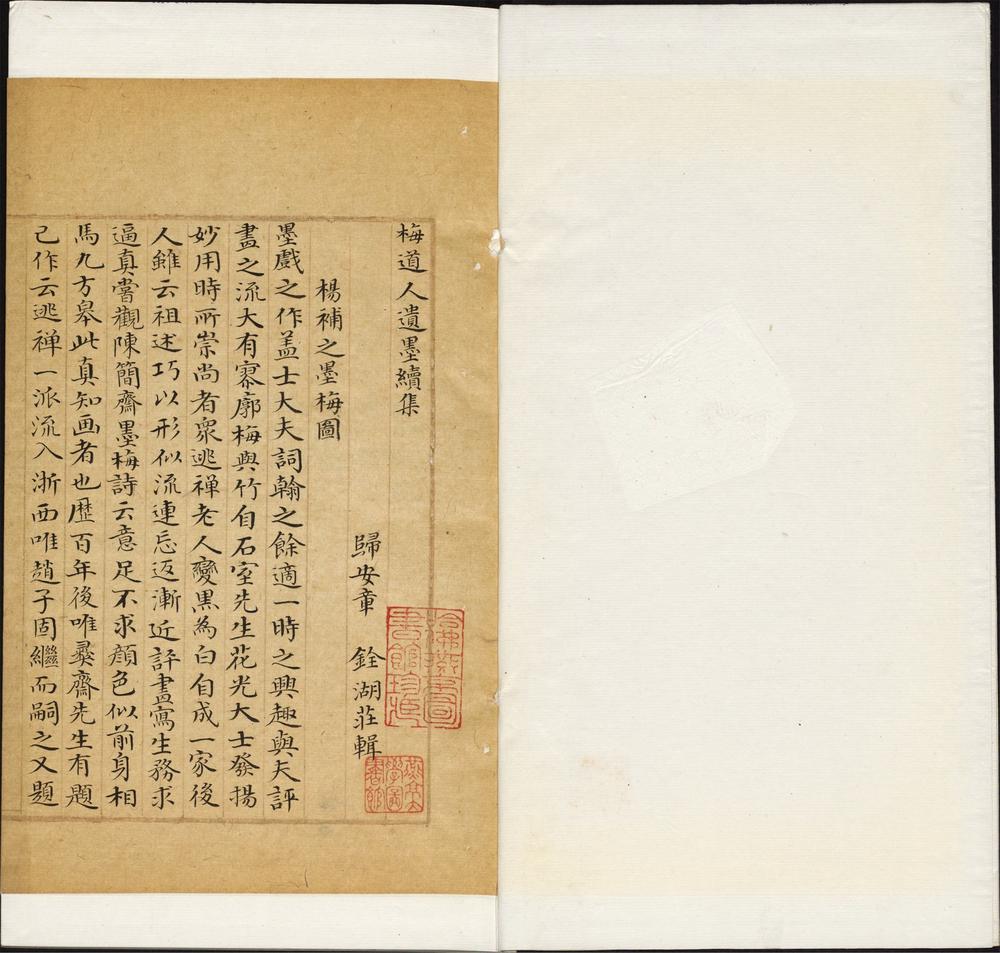 梅道人遺墨續集
歸安章　銓湖莊輯
楊補之墨梅圖
墨戲之作盖士大夫詞翰之餘適一時之興趣與夫評
畫之流大有寥廓梅與竹自石室先生花光大士發揚
妙用時所崇尚者衆逃禅老人變黑為白自成一家後
人雖云祖述巧以形似流連忘返漸近評畫寫生務求
逼真嘗觀陳簡齋墨梅詩云意足不求顔色似前身相
馬九方皋此真知画者也歷百年後唯彛齋先生有題
己作云逃禅一派流入浙西唯趙子固繼而嗣之又題
哈佛燕京圖
書館珍藏
燕京大
學圖
書館